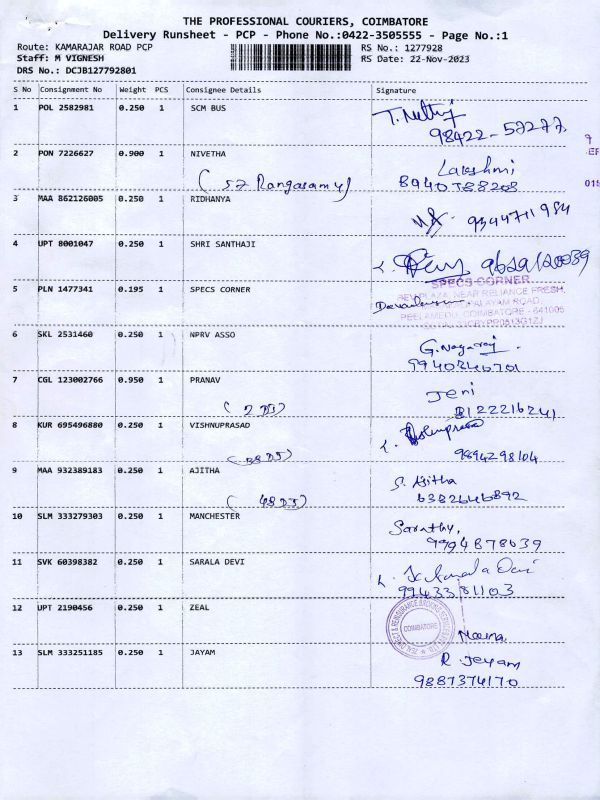 THE PROFESSIONAL COURIERS, COIMBATORE
Delivery Runsheet - PCP - Phone No.:0422-3505555 - Page No.:1
Route: KAMARAJAR ROAD PCP RS No.: 1277928
Staff: M VIGNESH RS Date: 22-Nov-2023
DRS No.: DCJB127792801
S No Consignment No Weight PCS Consignee Details Signature
1 POL 2582981 0.250 1 SCM BUS
98422-57277
2 PON 7226627 0.900 1 NIVETHA Lakshmi
(57 Rangasamy) 8940588208
3 MAA 862126005 0.250 1 RIDHANYA 9344711984
4 UPT 8001047 0.250 1 SHRI SANTHAJI
5 PLN 1477341 0.195 1 SPECS CORNER SPECS CORNER
NEAR RELIANCE FRESH,
PALAYAM ROAD,
PEELAMEDU, COIMBATORE - 641005
6 SKL 2531460 0.250 1 NPRV ASSO G. Nagaraj
9940346701
7 CGL 123002766 0.950 1 PRANAV Jeni
8122216241
8 KUR 695496880 0.250 1 VISHNUPRASAD
9894298104
9 MAA 932389183 0.250 1 AJITHA S. Ajitha
6382646892
10 SLM 333279303 0.250 1 MANCHESTER Sarathy,
9994878639
11 SVK 60398382 0.250 1 SARALA DEVI
9943381103
12 UPT 2190456 0.250 1 ZEAL COIMBATORE
13 SLM 333251185 0.250 1 JAYAM R. Jeyam
9887374170